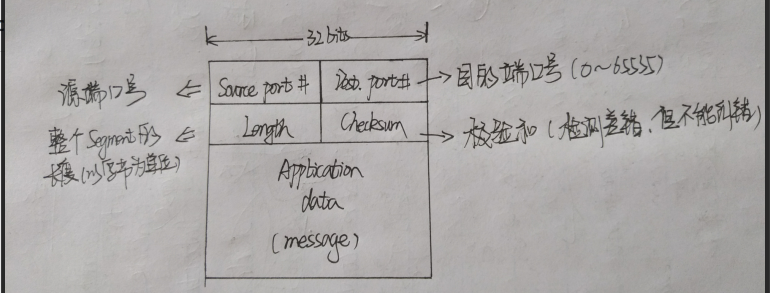 32bits
源端口号
Source port#
Dest. port#
目的端口号(0~65535)
整个Segment的
长度(以字节为单位)
Length
Checksum
校验和(检测差错,但不能纠错)
Application
data
(message)